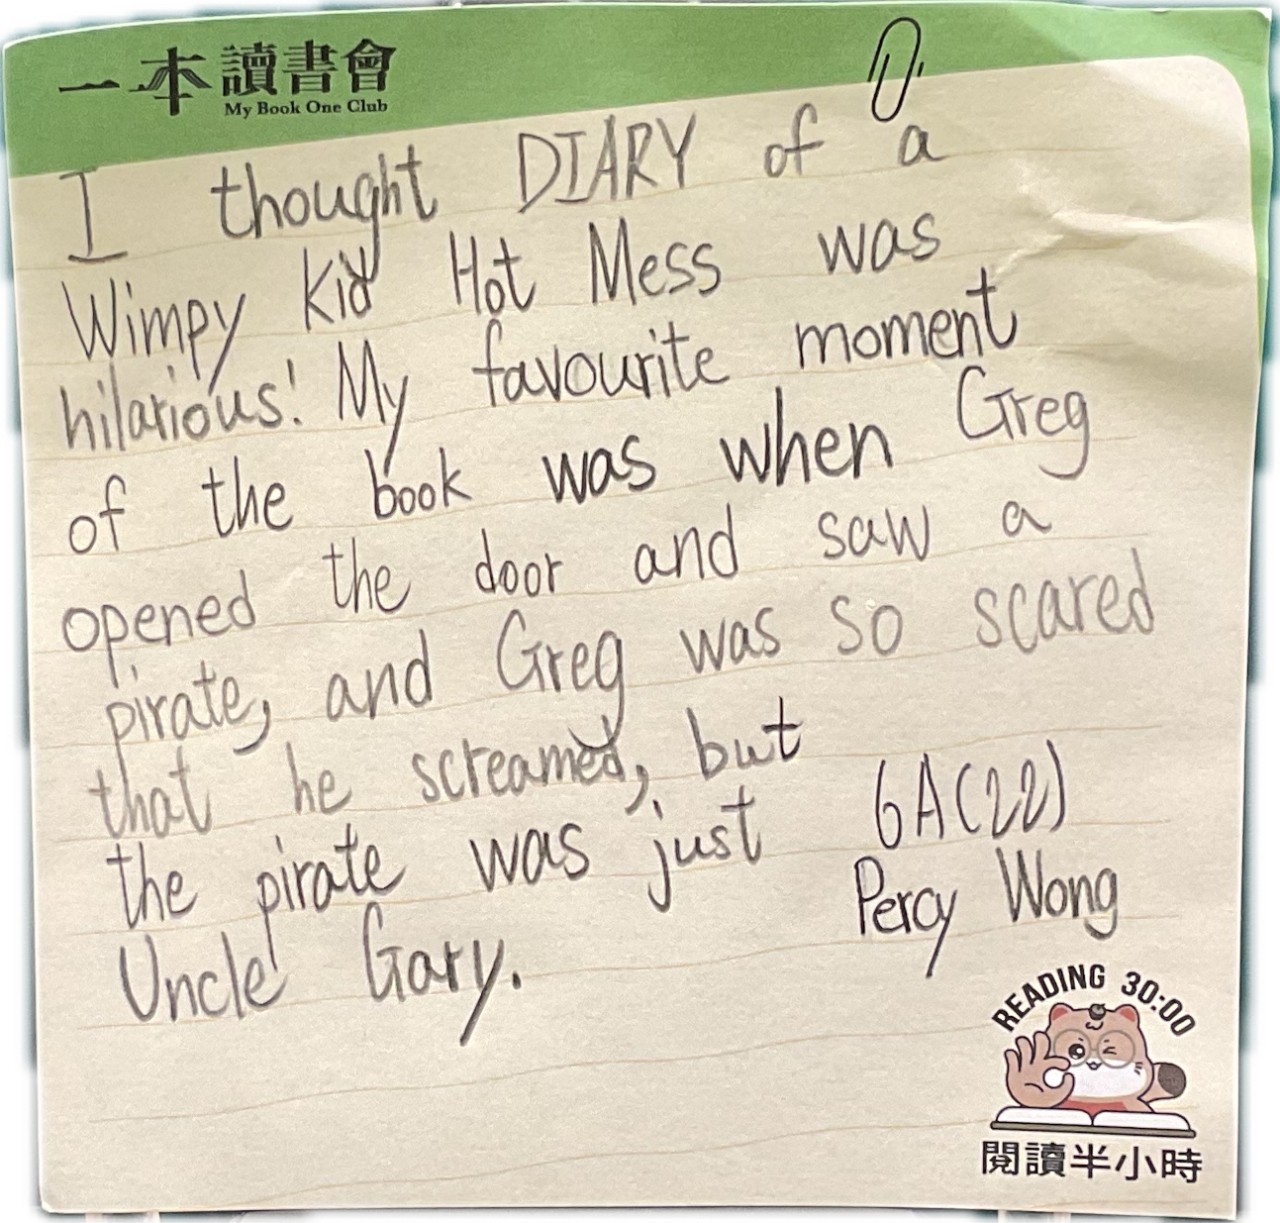 一本讀書會
My Book One Club
I thought DIARY of a
Wimpy Kid Hot Mess was
hilarious! My favourite moment
of the book was when Greg
opened the door and saw a
pirate, and Greg was so scared
that he screamed, but
the pirate was just
Uncle Gary.
6A(22)
Percy Wong
READING 30:00
閱讀半小時